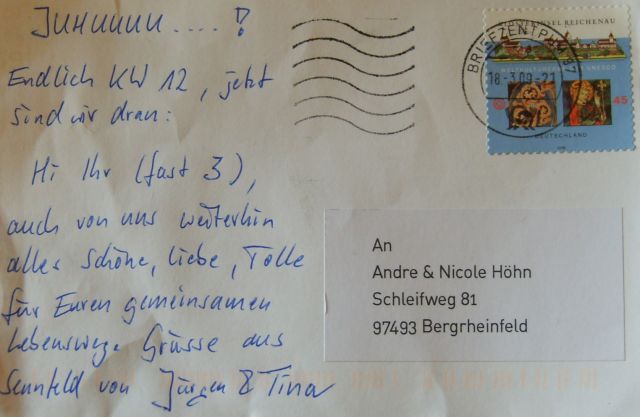 Juhuuuu....!
Endlich KW 12, jetzt
sind wir dran:
Hi Ihr (fast 3),
auch von uns weiterhin
alles Schöne, Liebe, Tolle
für Euren gemeinsamen
Lebensweg. Grüsse aus
Sennfeld von Jürgen & Tina
REICHENAU
BRIEFZENTRUM 97
18.-3.09-21
UNESCO
45
DEUTSCHLAND
An
Andre & Nicole Höhn
Schleifweg 81
97493 Bergrheinfeld